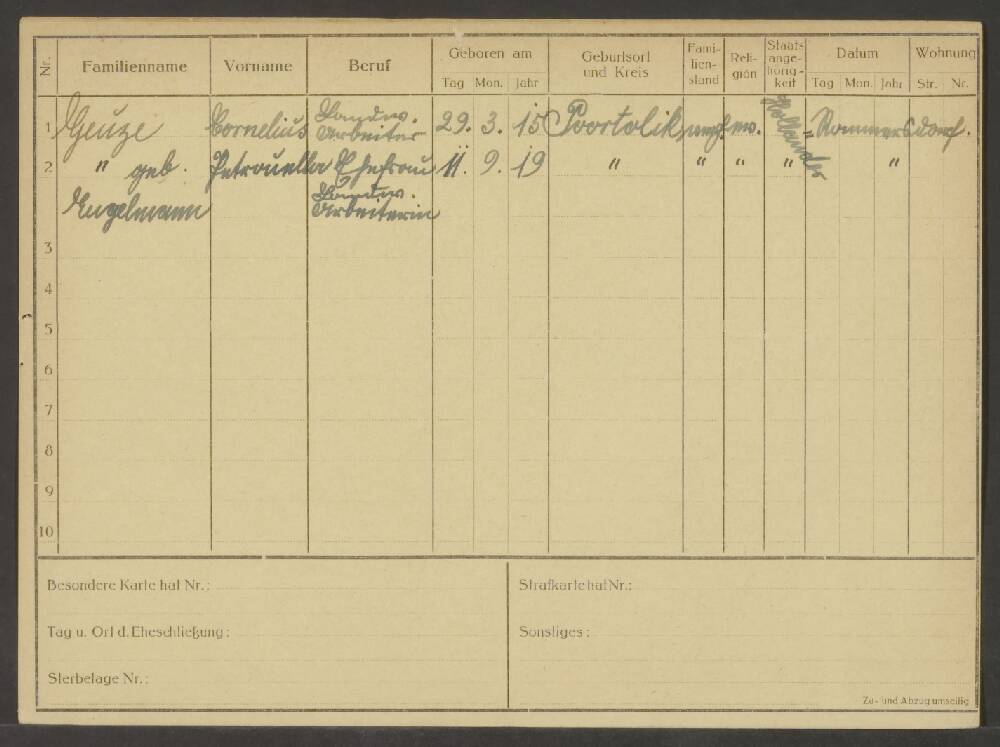 Nr. Familienname Vorname Beruf Geboren am Geburtsort und Kreis Fami-lien-stand Reli-gion Staats-ange-hörig-keit Datum Wohnung
Tag Mon. Jahr Tag Mon. Jahr Str. Nr.
1 Geuze Cornelius Landw. Arbeiter 29. 3. 15 Poortolik ev. Holländer " Sommersdorf.
2 " geb. Petronella Ehefrau 11. 9. 19 " " " " "
Engelmann Landw. Arbeiterin
3
4
5
6
7
8
9
10
Besondere Karte hat Nr.:
Strafkarte hat Nr.:
Tag u. Ort d. Eheschließung:
Sonstiges:
Sterbelage Nr.:
Zu- und Abzug umseitig